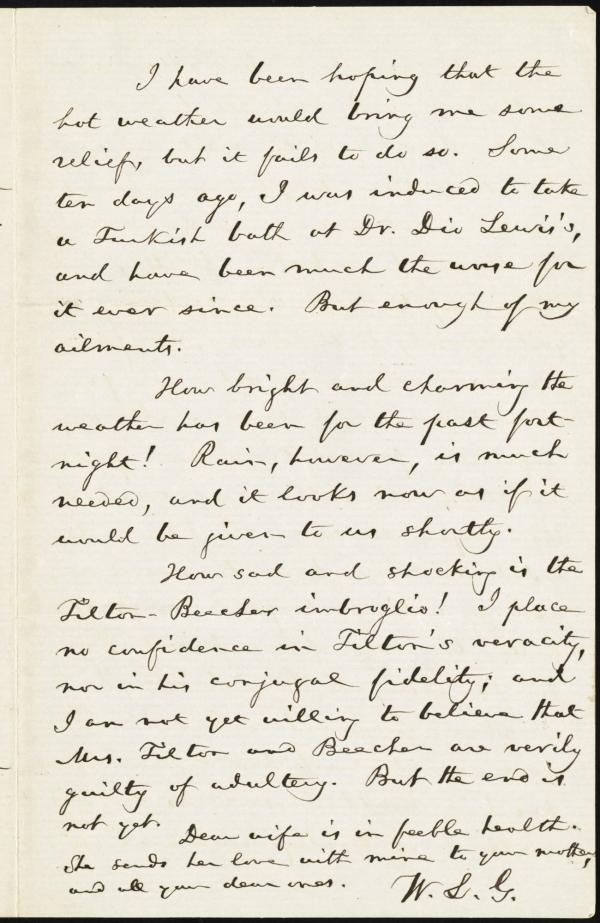 I have been hoping that the
hot weather would bring me some
relief, but it fails to do so. Some
ten days ago, I was induced to take
a Turkish bath at Dr. Dio Lewis's,
and have been much the worse for
it ever since. But enough of my
ailments.
How bright and charming the
weather has been for the past fort-
night! Rain, however, is much
needed, and it looks now as if it
would be given to us shortly.
How sad and shocking is the
Tilton-Beecher imbroglio! I place
no confidence in Tilton's veracity,
nor in his conjugal fidelity; and
I am not yet willing to believe that
Mrs. Tilton and Beecher are verily
guilty of adultery. But the end is
not yet.
Dear wife is in feeble health.
She sends her love with mine to your mother,
and all your dear ones.
W. L. G.